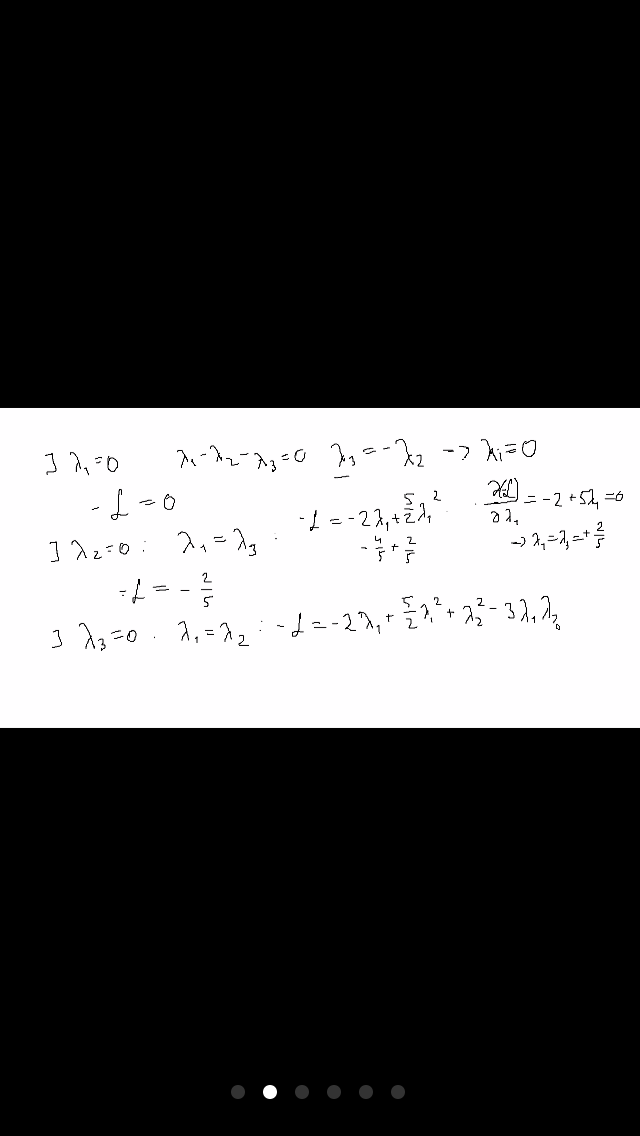 ∃ λ₁=0 λ₁-λ₂-λ₃=0 λ₃=-λ₂ → λᵢ=0
- ℒ = 0
∃ λ₂=0 : λ₁=λ₃ : -ℒ = -2λ₁+5/2 λ₁² . ∂(-ℒ)/∂λ₁ = -2+5λ₁=0
- 4/5 + 2/5 → λ₁=λ₃=+2/5
-ℒ = - 2/5
∃ λ₃=0 . λ₁=λ₂ : -ℒ = -2λ₁+ 5/2 λ₁² + λ₂² - 3λ₁λ₂